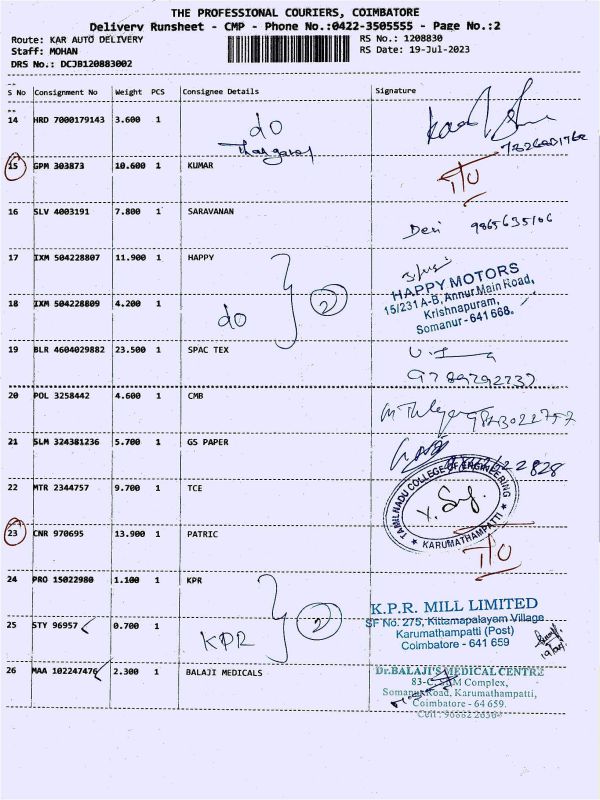 THE PROFESSIONAL COURIERS, COIMBATORE
Delivery Runsheet - CMP - Phone No.:0422-3505555 - Page No.:2
Route: KAR AUTO DELIVERY RS No.: 1208830
Staff: MOHAN RS Date: 19-Jul-2023
DRS No.: DCJB120883002
S No Consignment No Weight PCS Consignee Details Signature
14 HRD 7000179143 3.600 1 do
Thangaraj
15 GPM 303873 10.600 1 KUMAR
16 SLV 4003191 7.800 1 SARAVANAN
17 IXM 504228807 11.900 1 HAPPY
HAPPY MOTORS
15/231 A-B, Annur Main Road,
Krishnapuram,
Somanur - 641 668.
18 IXM 504228809 4.200 1 do 2
19 BLR 4604029882 23.500 1 SPAC TEX
9789792737
20 POL 3258442 4.600 1 CMB
21 SLM 324381236 5.700 1 GS PAPER
22 MTR 2344757 9.700 1 TCE
TAMILNADU COLLEGE OF ENGINEERING
KARUMATHAMPATTI
23 CNR 970695 13.900 1 PATRIC
24 PRO 15022980 1.100 1 KPR
K.P.R. MILL LIMITED
SF No. 275, Kittamapalayam Village
Karumathampatti (Post)
Coimbatore - 641 659
25 STY 96957 0.700 1 KPR 2
26 MAA 102247476 2.300 1 BALAJI MEDICALS
Dr.BALAJI'S MEDICAL CENTRE
Complex,
Somanur Road, Karumathampatti,
Coimbatore - 64 659.